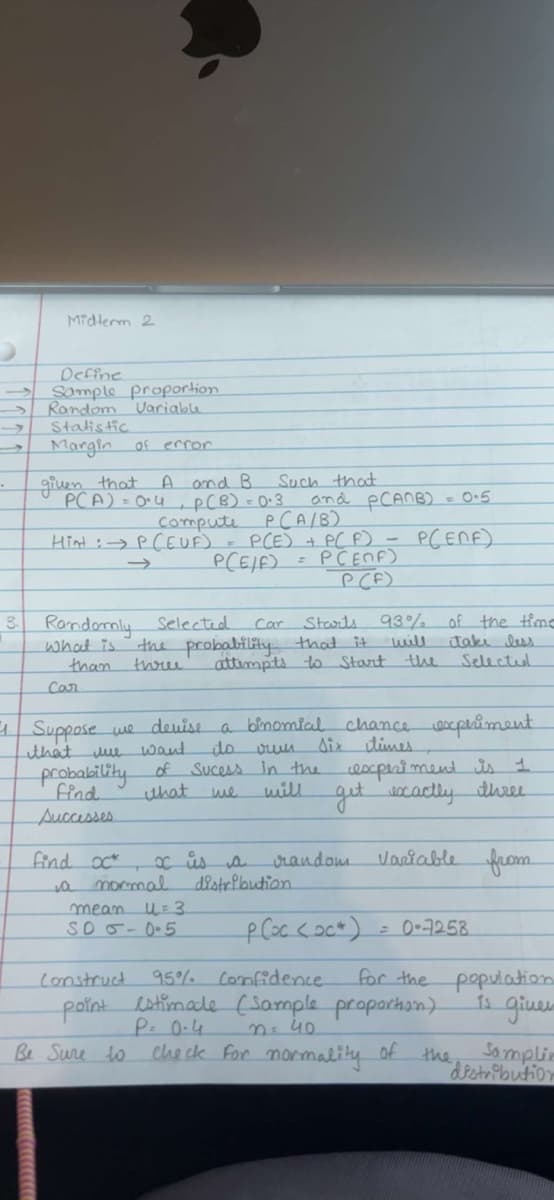 Midterm 2
Define
→ Sample proportion
→ Random Variable
→ Statistic
→ Margin of error
given that A and B Such that
P(A) = 0.4, P(B) = 0.3 and P(A∩B) = 0.5
compute P(A/B)
Hint : → P(EUF) = P(E) + P(F) - P(E∩F)
→ P(E/F) = P(E∩F)
P(F)
3. Randomly Selected Car Starts 93% of the time
what is the probability that it will take less
than three attempts to Start the Selected
Car
4 Suppose we devise a binomial chance experiment
that we want do run six times,
probability of Sucess in the experiment is 1
Find what we will get exactly three
Successes
find x*, x is a random variable from
a normal distribution
mean u = 3
SD σ - 0.5 P(x < x*) = 0.7258
Construct 95% Confidence for the population
point estimade (Sample proporhon) is given
P= 0.4 n= 40
Be Sure to check For normality of the Samplin
distribution